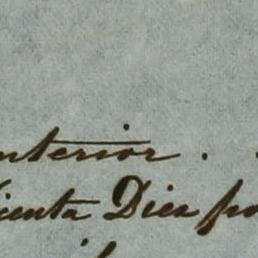 nterior .
cienta Diez po